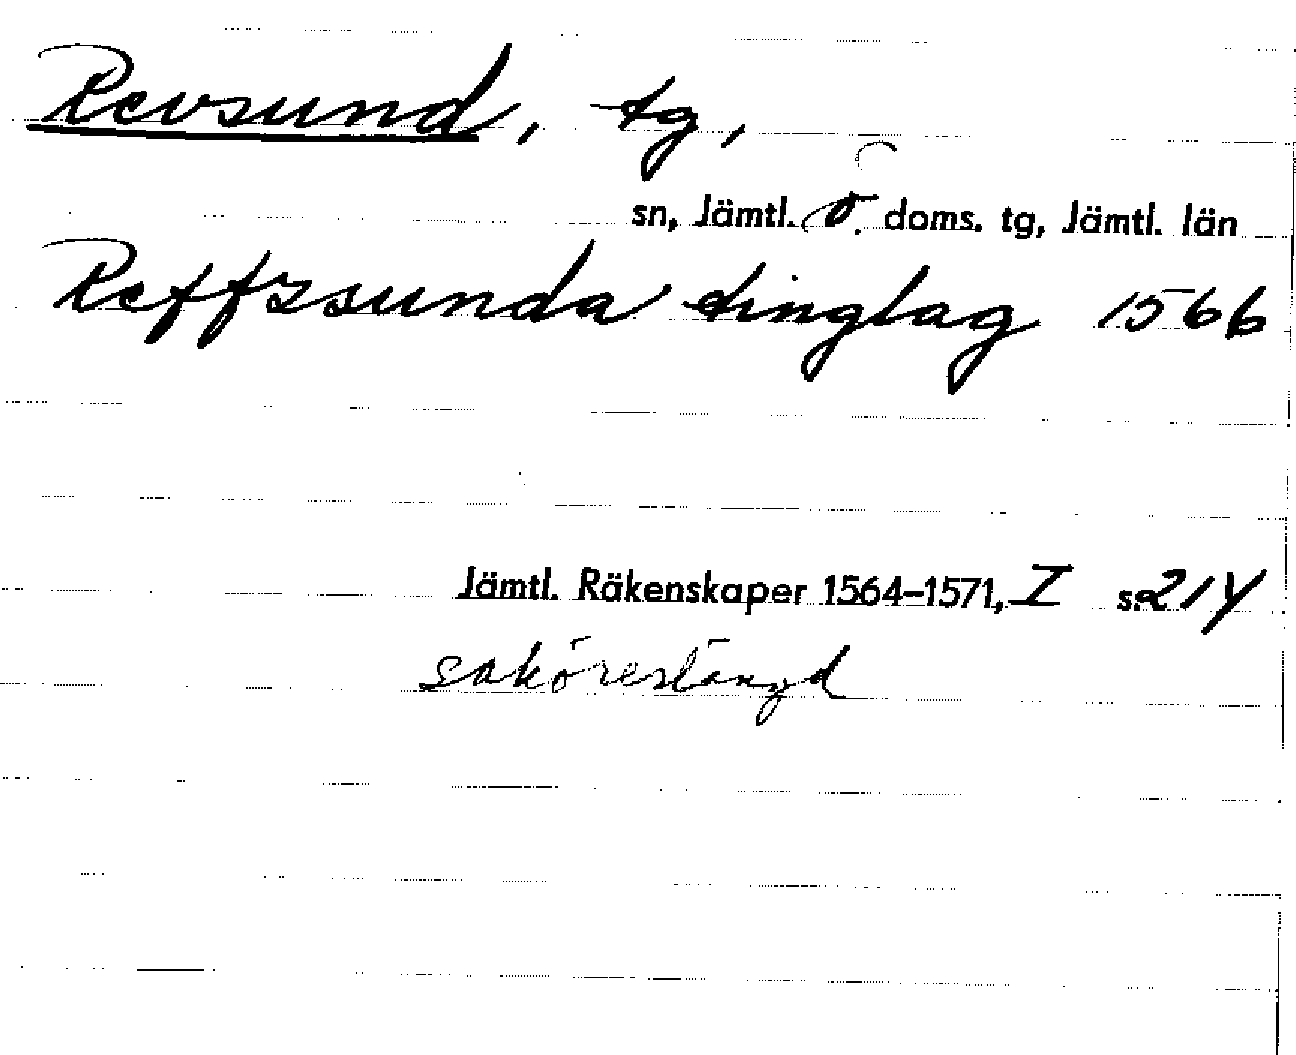 Revsund, tg,
sn, Jämtl. ö. doms. tg, Jämtl. län
Reffzsunda tinglag 1566
Jämtl. Räkenskaper 1564–1571, I s. 214
sakörestängd